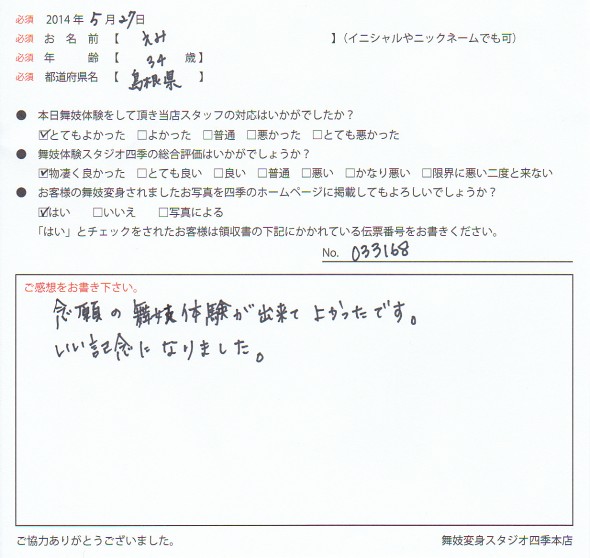 必須 2014 年 5 月 27 日
必須 お 名 前 【 えみ 】(イニシャルやニックネームでも可)
必須 年 齢 【 34 歳】
必須 都道府県名 【 島根県 】
● 本日舞妓体験をして頂き当店スタッフの対応はいかがでしたか?
☑とてもよかった □よかった □普通 □悪かった □とても悪かった
● 舞妓体験スタジオ四季の総合評価はいかがでしょうか?
☑物凄く良かった □とても良い □良い □普通 □悪い □かなり悪い □限界に悪い二度と来ない
● お客様の舞妓変身されましたお写真を四季のホームページに掲載してもよろしいでしょうか?
☑はい □いいえ □写真による
「はい」とチェックをされたお客様は領収書の下記にかかれている伝票番号をお書きください。
No. 033168
ご感想をお書き下さい。
念願の舞妓体験が出来てよかったです。
いい記念になりました。
ご協力ありがとうございました。
舞妓変身スタジオ四季本店